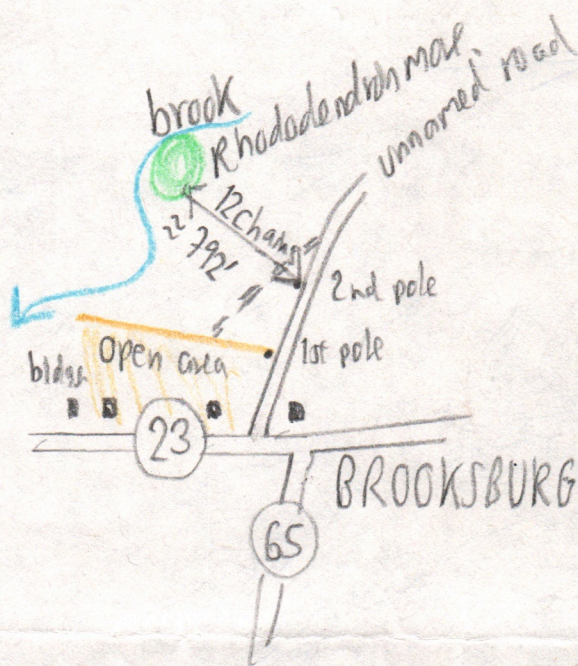 brook
Rhododendron max.
unnamed road
12 chains
792'
2nd pole
1st pole
open area
bldgs
23
BROOKSBURG
65